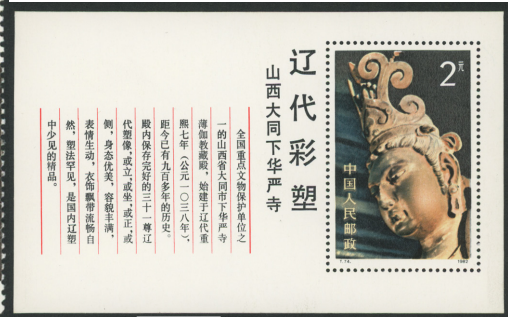 辽代彩塑
山西大同下华严寺
全国重点文物保护单位之
一的山西省大同市下华严寺
薄伽教藏殿，始建于辽代重
熙七年（公元一〇三八年），
距今已有九百多年的历史。
殿内保存完好的三十一尊辽
代塑像，或立，或坐，或正，或
侧，身态优美，容貌丰满，
表情生动，衣饰飘带流畅自
然，塑法罕见，是国内辽塑
中少见的精品。
2元
中国人民邮政
T.74.
1982